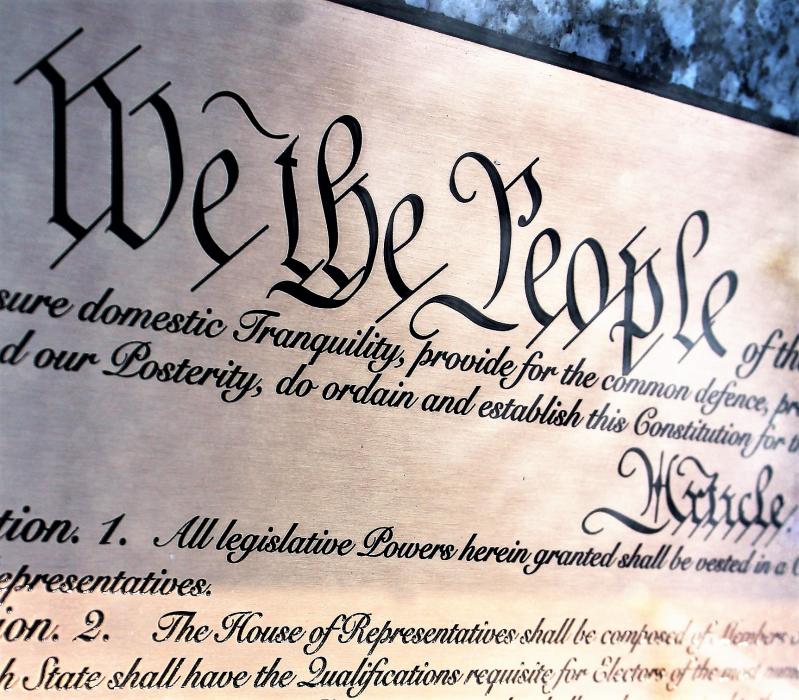 We the People of the
sure domestic Tranquility, provide for the common defence, pr
d our Posterity, do ordain and establish this Constitution for th
Article
tion. 1. All legislative Powers herein granted shall be vested in a C
epresentatives.
ion. 2. The House of Representatives shall be composed of Members
h State shall have the Qualifications requisite for Electors of the most